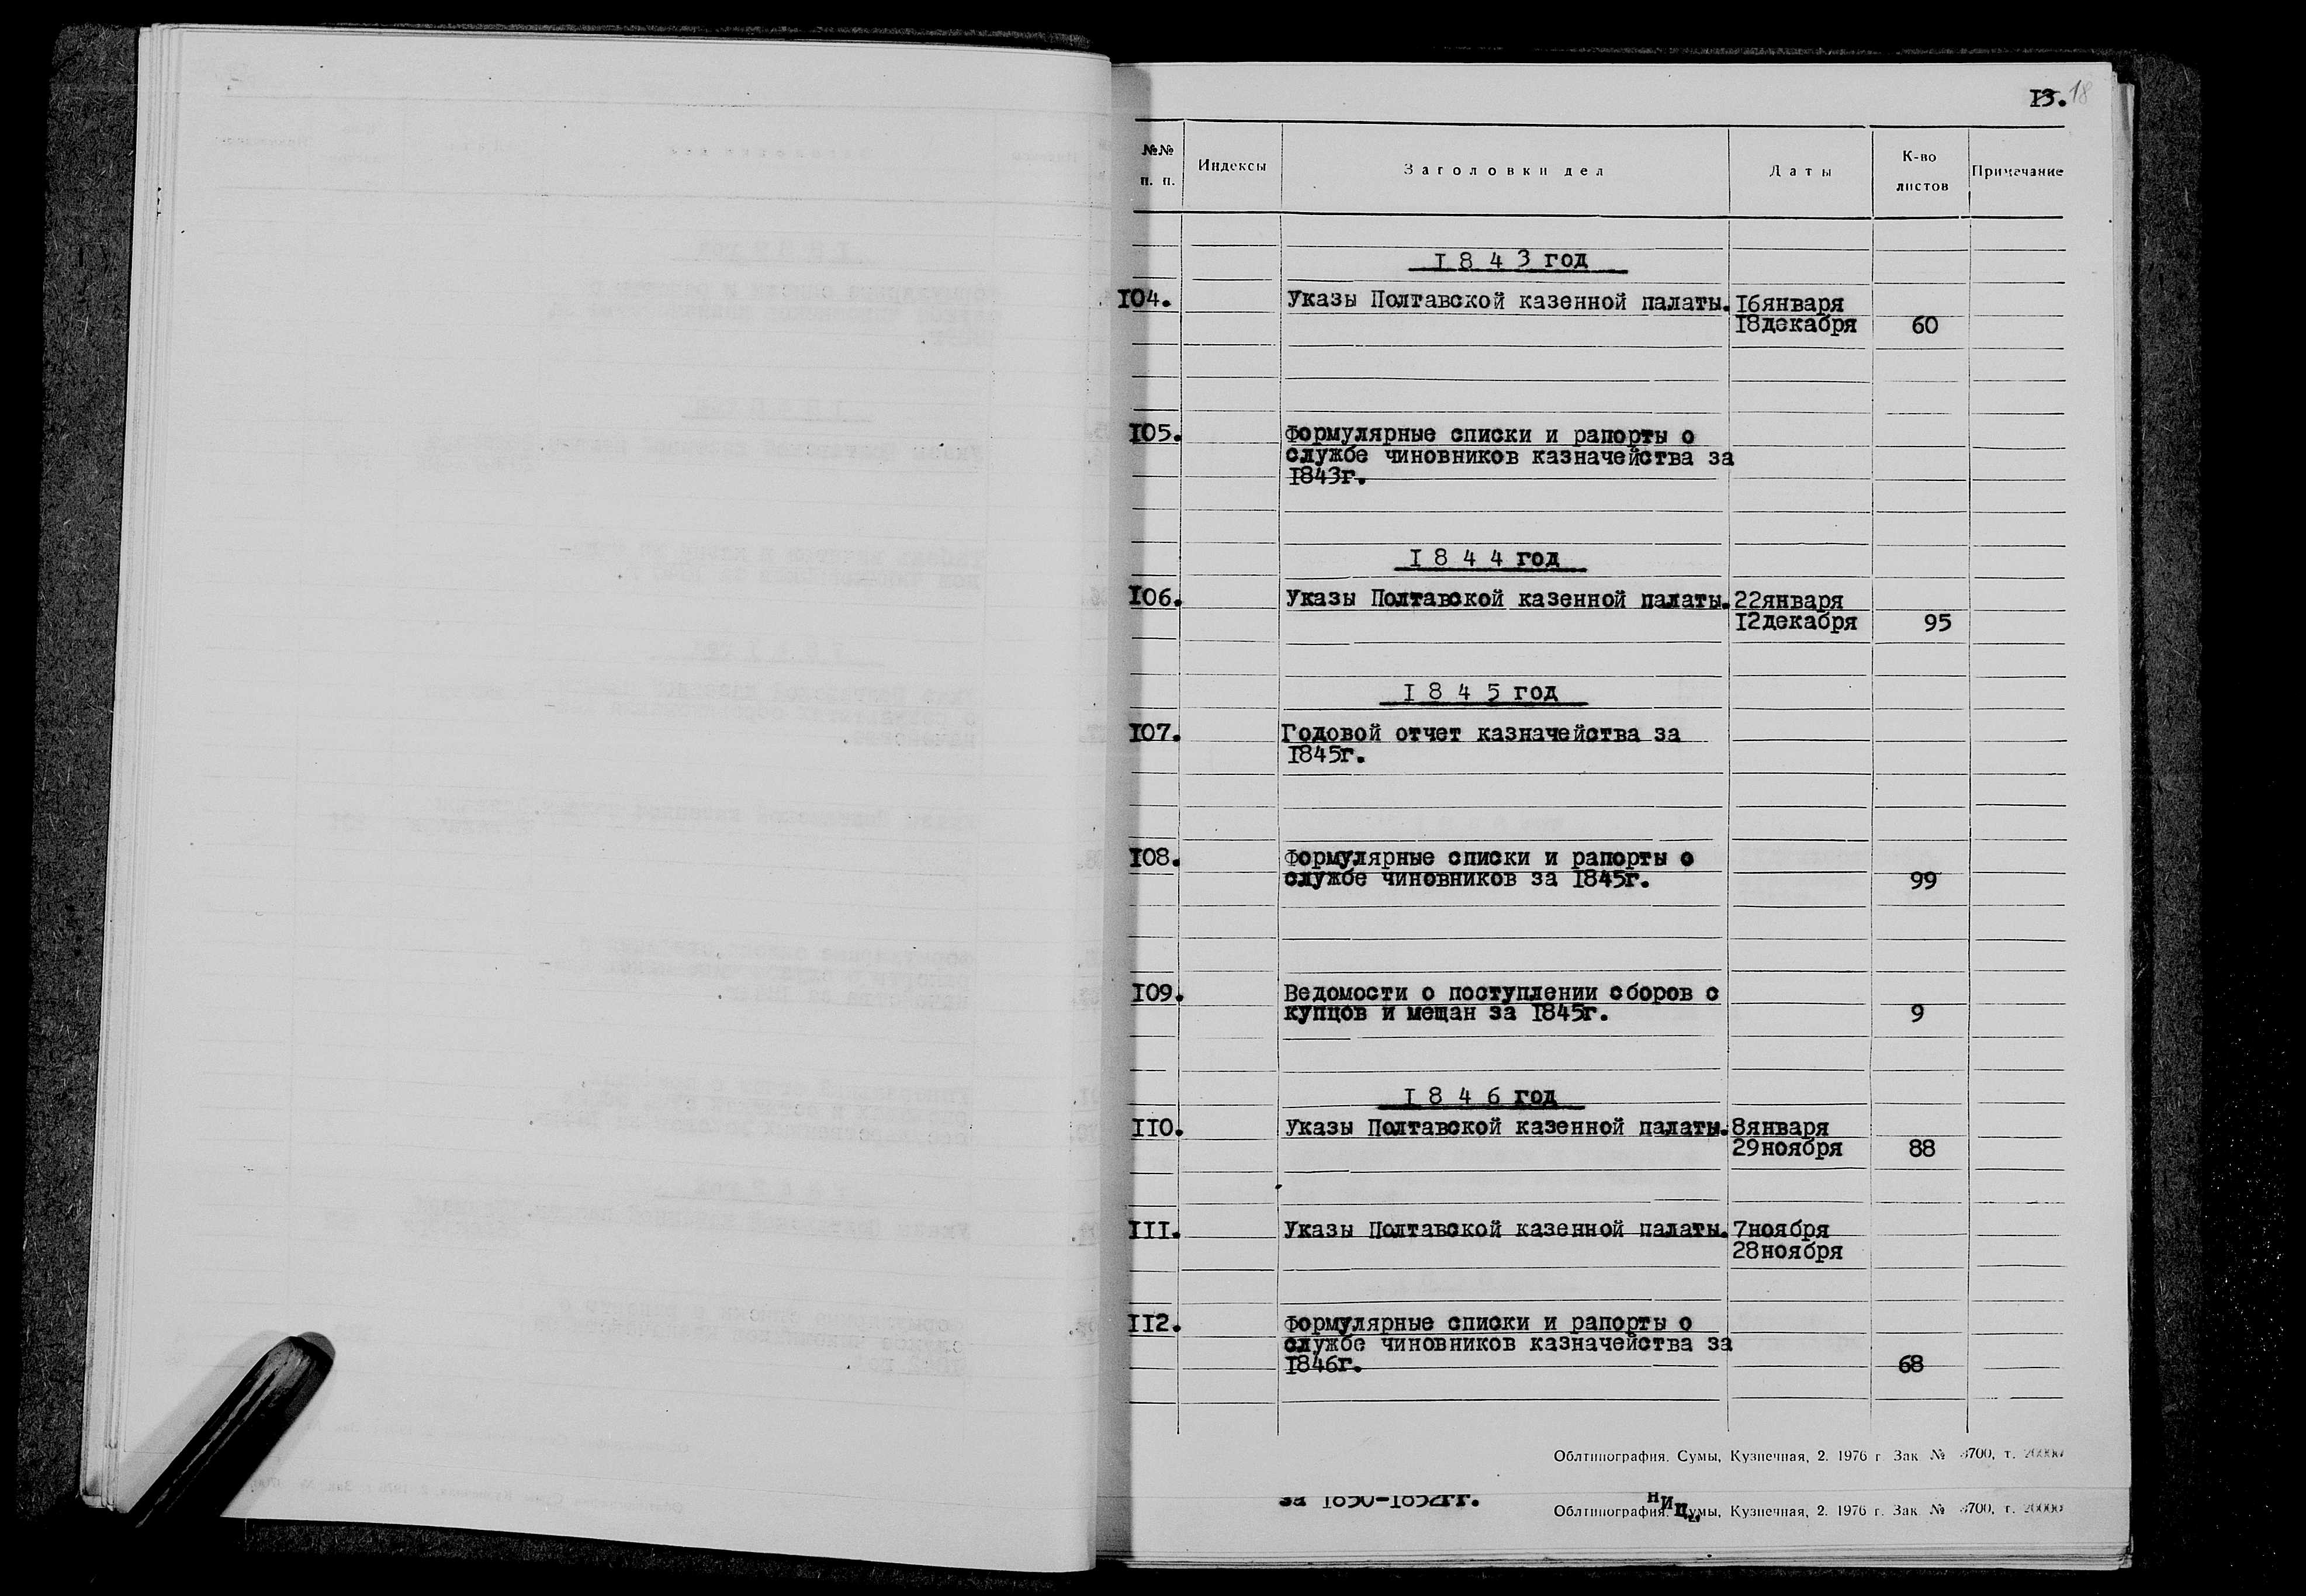 13. 18
№№ п. п. Индексы Заголовки дел Даты К-во листов Примечание
1843 год
104. Указы Полтавской казенной палаты. 16января
18декабря 60
105. Формулярные списки и рапорты о
службе чиновников казначейства за
1843г.
1844 год
106. Указы Полтавской казенной палаты. 22января
12декабря 95
1845 год
107. Годовой отчет казначейства за
1845г.
108. Формулярные списки и рапорты о
службе чиновников за 1845г. 99
109. Ведомости о поступлении сборов с
купцов и мещан за 1845г. 9
1846 год
110. Указы Полтавской казенной палаты. 8января
29ноября 88
111. Указы Полтавской казенной палаты. 7ноября
28ноября
112. Формулярные списки и рапорты о
службе чиновников казначейства за
1846г. 68
Облтипография. Сумы, Кузнечная, 2. 1976 г Зак № 3700, т. 20000
за 1850-1852гг.
Облтипография. Сумы, Кузнечная, 2. 1976 г. Зак № 3700, т. 20000